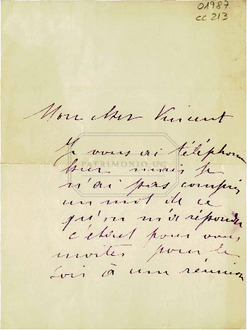 01987
cc 213
Mon cher Vincent
Je vous ai téléphoné
hier mais je
n'ai pas compris
un mot de ce
qu'on m'a répondu
c'était pour vous
inviter pour le
soir à une réunion
PATRIMONIO UC